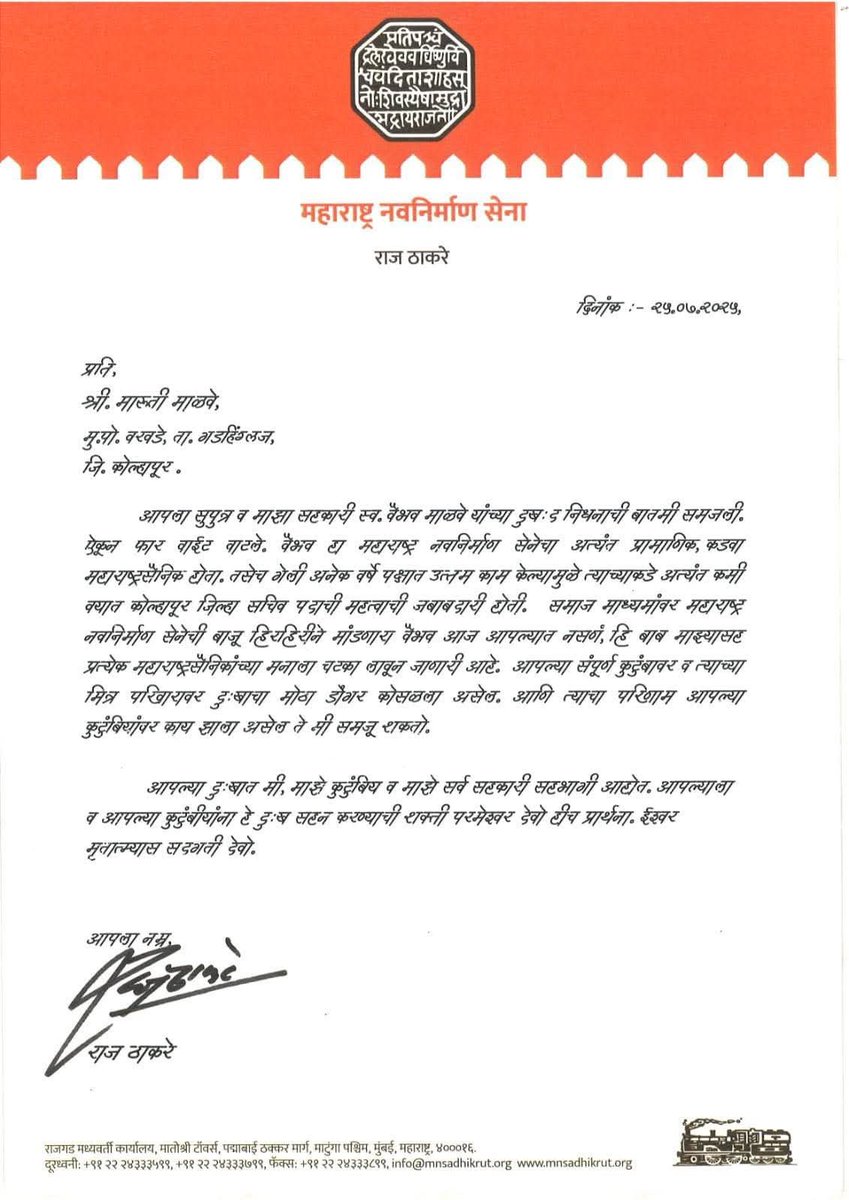 प्रतिपश्चं
द्रलेखेववर्धिष्णुर्वि
श्ववंदिताशाहस
नोःशिवस्यैषामुद्रा
भद्रायराजते
महाराष्ट्र नवनिर्माण सेना
राज ठाकरे
दिनांक :- २५.०७.२०२५,
प्रति,
श्री. मारुती माळवे,
मु.पो. वरखडे, ता. गडहिंग्लज,
जि. कोल्हापूर .
आपला सुपुत्र व माझा सहकारी स्व. वैभव माळवे यांच्या दुखःद निधनाची बातमी समजली.
ऐकून फार वाईट वाटले. वैभव हा महाराष्ट्र नवनिर्माण सेनेचा अत्यंत प्रामाणिक, कडवा
महाराष्ट्रसैनिक होता. तसेच गेली अनेक वर्षे पक्षात उत्तम काम केल्यामुळे त्याच्याकडे अत्यंत कमी
वयात कोल्हापूर जिल्हा सचिव पदाची महत्वाची जबाबदारी होती. समाज माध्यमांवर महाराष्ट्र
नवनिर्माण सेनेची बाजू हिरहिरीने मांडणारा वैभव आज आपल्यात नसणं, हि बाब माझ्यासह
प्रत्येक महाराष्ट्रसैनिकांच्या मनाला चटका लावून जाणारी आहे. आपल्या संपूर्ण कुटुंबावर व त्याच्या
मित्र परिवारावर दुःखाचा मोठा डोंगर कोसळला असेल. आणि त्याचा परिणाम आपल्या
कुटुंबियांवर काय झाला असेल ते मी समजू शकतो.
आपल्या दुःखात मी, माझे कुटुंबिय व माझे सर्व सहकारी सहभागी आहोत. आपल्याला
व आपल्या कुटुंबीयांना हे दुःख सहन करण्याची शक्ती परमेश्वर देवो हीच प्रार्थना. ईश्वर
मृतात्म्यास सदगती देवो.
आपला नम्र,
राज ठाकरे
राजगड मध्यवर्ती कार्यालय, मातोश्री टॉवर्स, पद्माबाई ठक्कर मार्ग, माटुंगा पश्चिम, मुंबई, महाराष्ट्र, ४०००१६.
दूरध्वनी: +९१ २२ २४३३३५९९, +९१ २२ २४३३३७९९, फॅक्स: +९१ २२ २४३३३८९९, info@mnsadhikrut.org www.mnsadhikrut.org